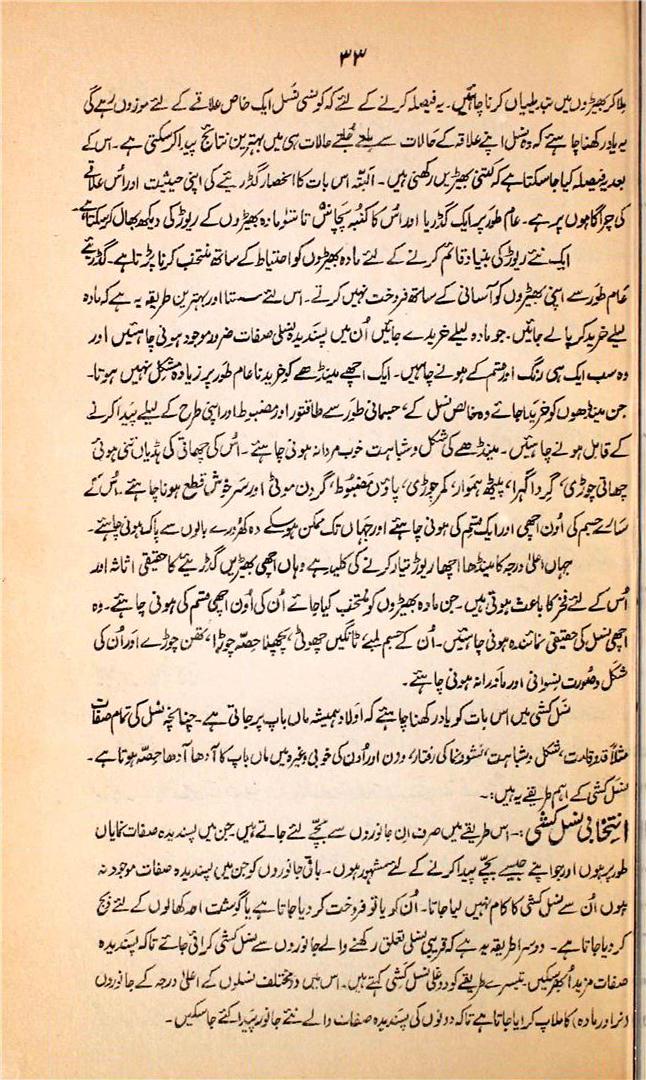 ۳۳
ملا کر بھیڑوں میں تبدیلیاں کرنا چاہئیں۔ یہ فیصلہ کرنے کے لئے کہ کونسی نسل ایک خاص علاقے کے لئے موزوں رہے گی
یہ یاد رکھنا چاہئے کہ وہ نسل اپنے علاقہ کے حالات سے ملتے جلتے حالات ہی میں بہترین نتائج پیدا کر سکتی ہے۔ اس کے
بعد فیصلہ کیا جا سکتا ہے کہ کتنی بھیڑیں رکھنی ہیں۔ البتہ اس بات کا انحصار گڈریئے کی اپنی حیثیت اور اُس علاقے
کی چراگاہوں پر ہے۔ عام طور پر ایک گڈریا اور اُس کا کنبہ پچاس تا سَو مادہ بھیڑوں کے ریوڑ کی دیکھ بھال کر سکتا ہے۔
ایک نئے ریوڑ کی بنیاد قائم کرنے کے لئے مادہ بھیڑوں کو احتیاط کے ساتھ منتخب کرنا پڑتا ہے۔ گڈریئے
عام طور سے اپنی بھیڑوں کو آسانی کے ساتھ فروخت نہیں کرتے۔ اس لئے سستا اور بہترین طریقہ یہ ہے کہ مادہ
لیلے خرید کر پالے جائیں۔ جو مادہ لیلے خریدے جائیں اُن میں پسندیدہ نسلی صفات ضرور موجود ہونی چاہئیں اور
وہ سب ایک ہی رنگ اور قسم کے ہونے چاہیں۔ ایک اچھے مینڈھے کو خریدنا عام طور پر زیادہ مشکل نہیں ہوتا۔
جن مینڈھوں کو خریدا جائے وہ خالص نسل کے، جسمانی طور سے طاقتور اور مضبوط اور اپنی طرح کے لیلے پیدا کرنے
کے قابل ہونے چاہئیں۔ مینڈھے کی شکل و شباہت خوب مردانہ ہونی چاہئے۔ اُس کی چھاتی کی ہڈیاں تنی ہوئی
چھاتی چوڑی، گِردا گہرا، پیٹھ ہموار، کمر چوڑی، پاؤں مضبوط، گردن موٹی اور سر خوش قطع ہونا چاہئے۔ اُس کے
سارے جسم کی اُون اچھی اور ایک قسم کی ہونی چاہئے اور جہاں تک ممکن ہو سکے وہ کھُردرے بالوں سے پاک ہونی چاہئے۔
جہاں اعلیٰ درجہ کا مینڈھا اچھا ریوڑ تیار کرنے کی کلید ہے وہاں اچھی بھیڑیں گڈریئے کا حقیقی اثاثہ اور
اُس کے لئے فخر کا باعث ہوتی ہیں۔ جن مادہ بھیڑوں کو منتخب کیا جائے اُن کی اُون اچھی قسم کی ہونی چاہئے۔ وہ
اچھی نسل کی حقیقی نمائندہ ہونی چاہئیں۔ اُن کے جسم لمبے ٹانگیں چھوٹی، پچھلا حصّہ چوڑا، تھن چوڑے اور اُن کی
شکل و صورت نسوانی اور مادرانہ ہونی چاہئے۔
نسل کشی میں اس بات کو یاد رکھنا چاہئے کہ اولاد ہمیشہ ماں باپ پر جاتی ہے۔ چنانچہ نسل کی تمام صفات
مثلاً قد و قامت، شکل و شباہت، نشوونما کی رفتار، وزن اور اُون کی خوبی وغیرہ میں ماں باپ کا آدھا آدھا حصّہ ہوتا ہے۔
نسل کشی کے اہم طریقے یہ ہیں:۔
انتخابی نسل کشی :۔ اس طریقے میں صرف ان جانوروں سے بچّے لئے جاتے ہیں جن میں پسندیدہ صفات نمایاں
طور پر ہوں اور جو اپنے جیسے بچّے پیدا کرنے کے لئے مشہور ہوں۔ باقی جانوروں کو جن میں پسندیدہ صفات موجود نہ
ہوں اُن سے نسل کشی کا کام نہیں لیا جاتا۔ اُن کو یا تو فروخت کر دیا جاتا ہے یا گوشت اور کھالوں کے لئے ذبح
کر دیا جاتا ہے۔ دوسرا طریقہ یہ ہے کہ قریبی نسلی تعلق رکھنے والے جانوروں سے نسل کشی کرائی جائے تاکہ پسندیدہ
صفات مزید اُبھر سکیں۔ تیسرے طریقے کو دوغلی نسل کشی کہتے ہیں۔ اس میں دو مختلف نسلوں کے اعلیٰ درجہ کے جانوروں
(نر اور مادہ) کا ملاپ کرایا جاتا ہے تاکہ دونوں کی پسندیدہ صفات والے نئے جانور پیدا کئے جا سکیں۔